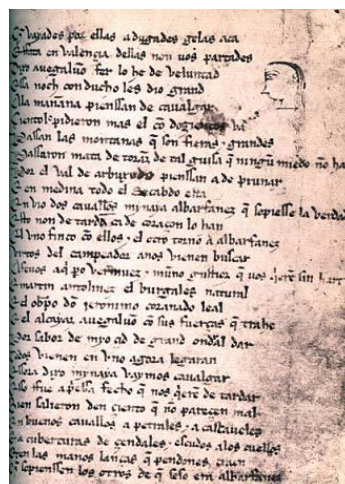 Q̃ vayades por ellas adugades gelas aca
E ffata en valençia dellas non uos partades
Dixo auegaluõ fer lo he de veluntad
Essa noch conducho les dio grand
A la mañana pienssan de caualgar
Çientol pidieron mas el cõ dozientos va
Passan las montanas q̃ son fieras ⁊ grandes
Passaron mata de torãz de tal guisa q̃ ningũ miedo nõ hã
Por el val de arbuxedo pienssan a deprunar
E en medina todo el Recabdo esta
Enuio dos cauallos mynaya albarfanez q̃ sopiesse la verdad
Esto non detarda ca de coraçon lo han
El vno finco cõ ellos ⁊ el otro torno a albarfanez
Virtos del campeador anos vienen buscar
Afeuos aq̃ po vermuez ⁊ muño gustioz q̃ uos q̃ere sin hart
E martin antolinez el burgales natural
E el obpo dõ jeronimo coranado leal
E el alcayaz auegaluõ cõ sus fuerças q̃ trahe
Por sabor de myo çid de grand ondral dar
Todos vienen en vno agora legaran
Essora dixo mynaya vaymos caualgar
Esso fue apiessa fecho q̃ nos q̃erẽ detardar
Bien salieron den çiento q̃ nõ pareçen mal
En buenos cauallos a petrales ⁊ a cascaueles
E a cuberturas de çendales ⁊ escudos alos cuellos
E en las manos lanças q̃ pendones traen
Q̃ sopienssen los otros de q̃ seso era albarfanez